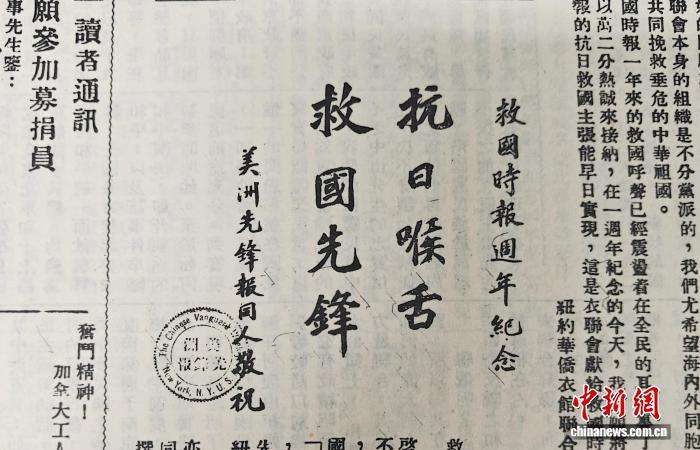 聯會本身的組織是不分黨派的，我們尤希望海內外同胞
共同挽救垂危的中華祖國。
國時報一年來的救國呼聲已經震盪着在全民的耳
以萬二分熱誠來接納，在一週年紀念的今天，我
報的抗日救國主張能早日實現，這是衣聯會獻給救國時
紐約華僑衣館聯合
救國時報週年紀念
抗日喉舌
救國先鋒
美洲先鋒報同人敬祝
The Chinese Vanguard
New York, N.Y. U.S.
美洲先鋒報
讀者通訊
願參加募捐員
事先生鑒：
奮鬥精神！
加拿大工人
中新網
chinanews.com.cn